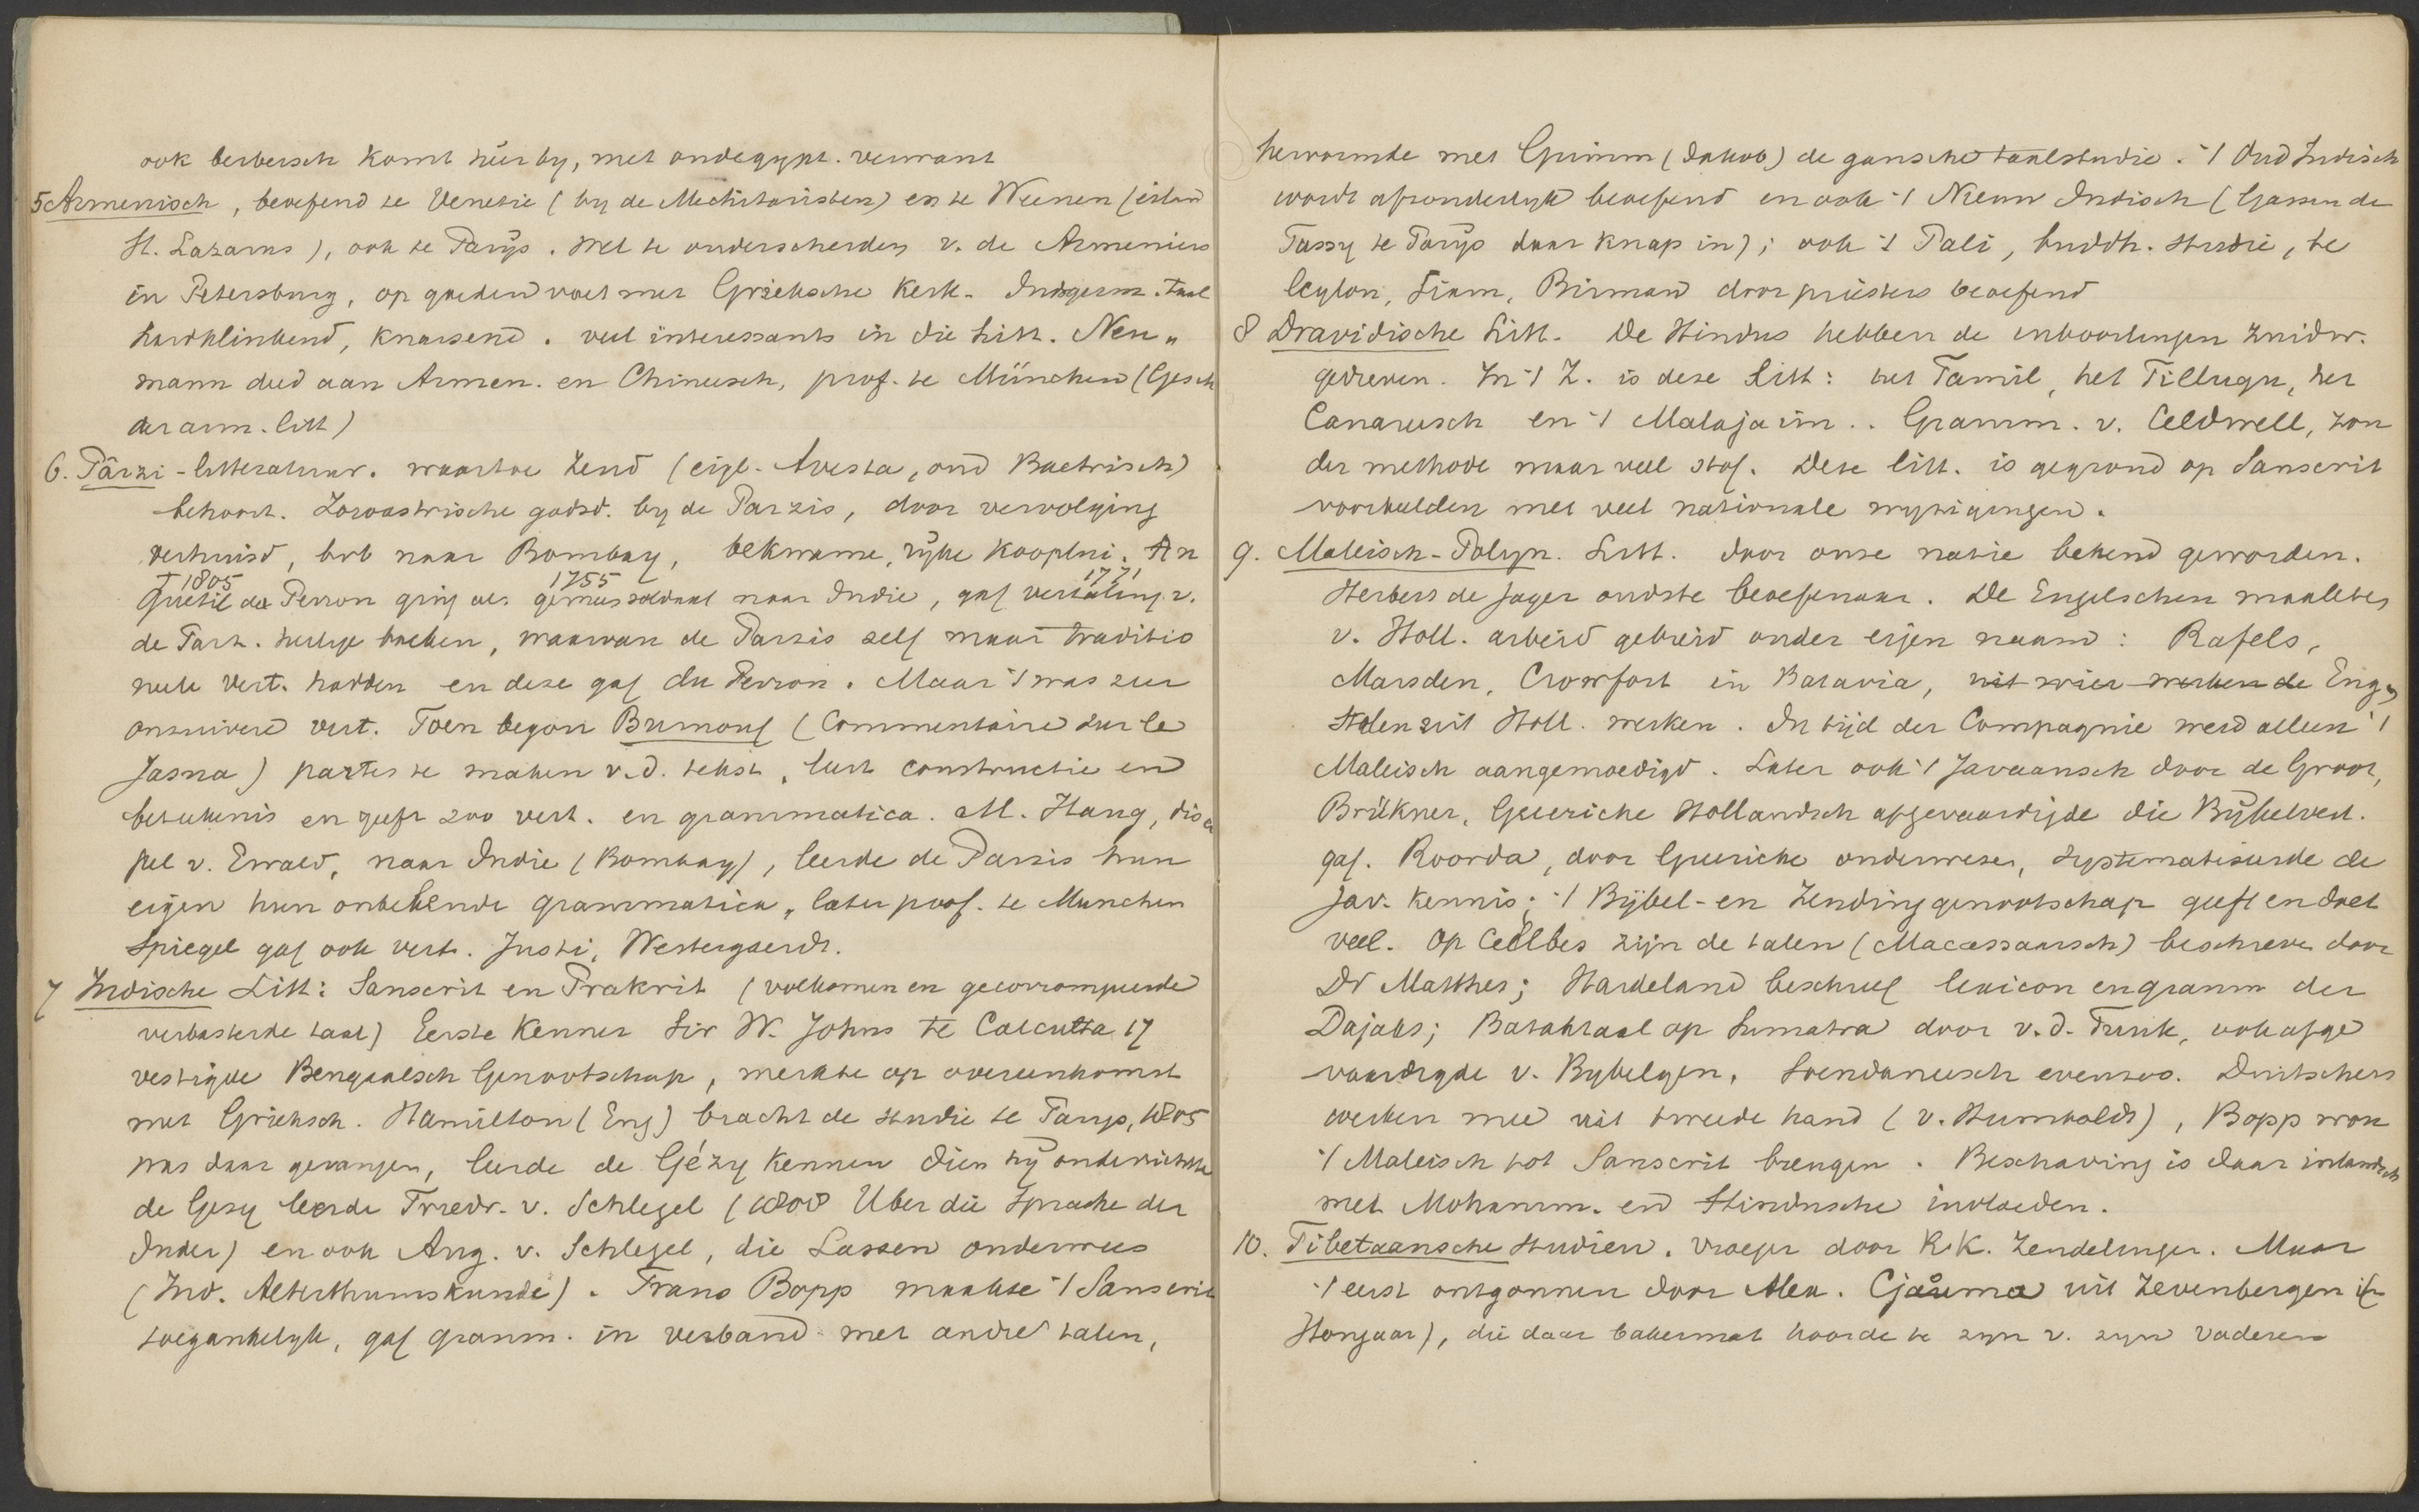 ook berbersch komt hier by, met oudegypt. verwant
5 Armenisch, beoefend te Venetie (by de Mechitaristen) en te Weenen (eiland
St. Lazarus), ook te Parÿs. Wel te onderscheiden v. de Armeniers
in Petersburg, op goeden voet met Grieksche kerk. Indogerm. taal
hardklinkend, knarsend. veel interessants in die litt. Neu„
mann deed aan Armen. en Chineesch, prof. te München (Gesch
der arm. litt)
6. Pârzi-litteratuur. waartoe Zend (eigl. Avesta, oud Bactrisch)
behoort. Zoroastrische godsd. by de Parzis, door vervolging
verhuisd, bvb naar Bombay, bekwame, rÿke kooplui. An
† 1805 1755 1771
quetil du Perron ging als gemeensoldaat naar Indie, gaf vertaling v.
de Parz. heilige boeken, waarvan de Parzis zelf maar traditio
neele vert. hadden en deze gaf du Perron. Maar 't was zeer
onzuivere vert. Toen begon Burnouf (Commentaire sur le
Jasna) partes te maken v.d. tekst, leert constructie en
beteekenis en geeft zoo vert. en grammatica. M. Haug, disci
pel v. Ewald, naar Indie (Bombay), leerde de Parzis hun
eigen hun onbekende grammatica, later prof. te Munchen
Spiegel gaf ook vert. Justi, Westergaerdt.
7 Indische Litt: Sanscrit en Prakrit (volkomen en gecorrompeerde
verbasterde taal) Eerste kenner Sir W. Johns te Calcutta 17
vestigde Bengaalsch Genootschap, merkte op overeenkomst
met Grieksch. Hamilton (Eng) bracht de studie te Parys, 1805
was daar gevangen, leerde de Gézy kennen dien hÿ onderrichtte
de Gesy leerde Friedr. v. Schlegel (1808 Uber die Sprache der
Inder) en ook Aug. v. Schlegel, die Lassen onderwees
(Ind. Alterthumskunde). Frans Bopp maakte 't Sanscrit
toegankelyk, gaf gramm. in verband met andre talen,
hervormde met Grimm (Jakob) de gansche taalstudie. 't Oud Indisch
wordt afzonderlyk beoefend en ook 't Nieuw Indisch (Garsin de
Tassy te Parÿs daar knap in); ook 't Pali, buddh. studie, te
Ceylon, Siam, Birman door priesters beoefend
8 Dravidische Litt. De Hindus hebben de inboorlingen zuidw.
gedreven. In 't Z. is deze Litt: het Tamil, het Tillugu, het
Canareesch en 't Malajaim.. Gramm. v. Celdwell, zon
der methode maar veel stof. Deze litt. is gegrond op Sanscrit
voorbeelden met veel nationale wyzigingen.
9. Maleisch-Polyn. Litt. door onze natie bekend geworden.
Herbers de Jager oudste beoefenaar. De Engelschen maakten
v. Holl. arbeid gebruik onder eigen naam: Rafels,
Marsden, Crowfort in Batavia, uit wier werken de Eng„
stalen uit Holl. werken. In tijd der Compagnie werd alleen 't
Maleisch aangemoedigd. Later ook 't Javaansch door de Groot,
Brükner, Geericke Hollandsch afgevaardigde die Bÿbelvert.
gaf. Roorda, door Geericke onderwezen, systematiseerde de
Jav. kennis; 't Bÿbel- en Zendinggenootschap geeft en doet
veel. Op Celebes zijn de talen (Macassaarsch) beschreven door
Dr Matthes; Hardeland beschreef lexicon en gramm der
Dajaks; Bataktaal op Sumatra door v.d. Tuuk, ook afge
vaardigde v. Bybelgen. Soendaneesch evenzoo. Duitschers
werken mee uit tweede hand (v. Humboldt), Bopp wou
't Maleisch tot Sanscrit brengen. Beschaving is daar inlandsch
met Mohamm. en Hindusche invloeden.
10. Tibetaansche studien. Vroeger door R.K. Zendelingen. Maar
't eerst ontgonnen door Alex. Cjauma uit Zevenbergen (
Hongaar), die daar bakermat hoorde te zyn v. zyn vaderen